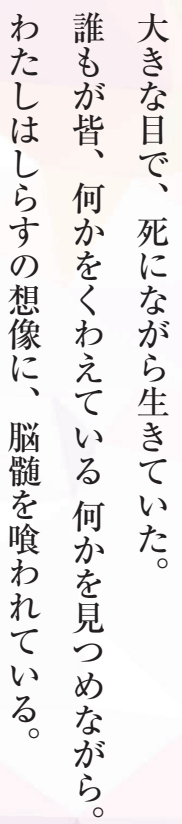 大きな目で、死にながら生きていた。
誰もが皆、何かをくわえている 何かを見つめながら。
わたしはしらすの想像に、脳髄を喰われている。